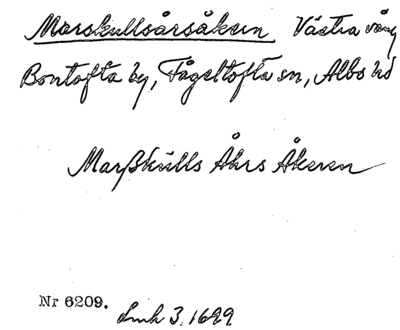 Marskullsårsåkern Västra vång
Bontofta by, Fågeltofta sn, Albo hd
Marßkulls Åhrs Åkeren
Nr 6209.
Lmk 3, 1699